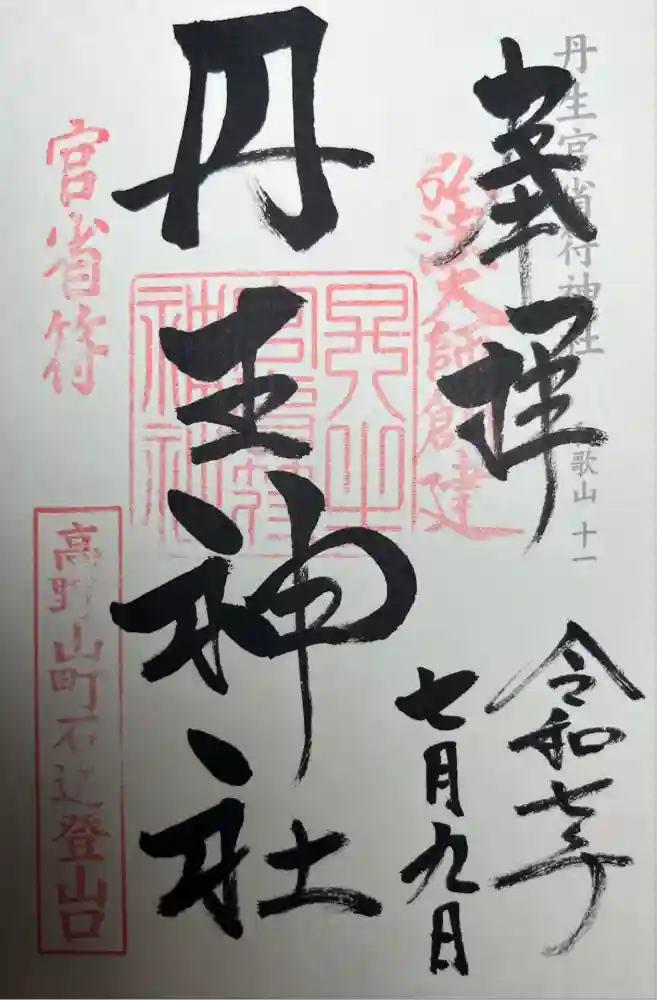 丹生官省符神社
和歌山 十一
奉拝
弘法大師創建
令和七年
七月九日
丹生神社
丹生官省符神社
官省符
高野山町石道登山口